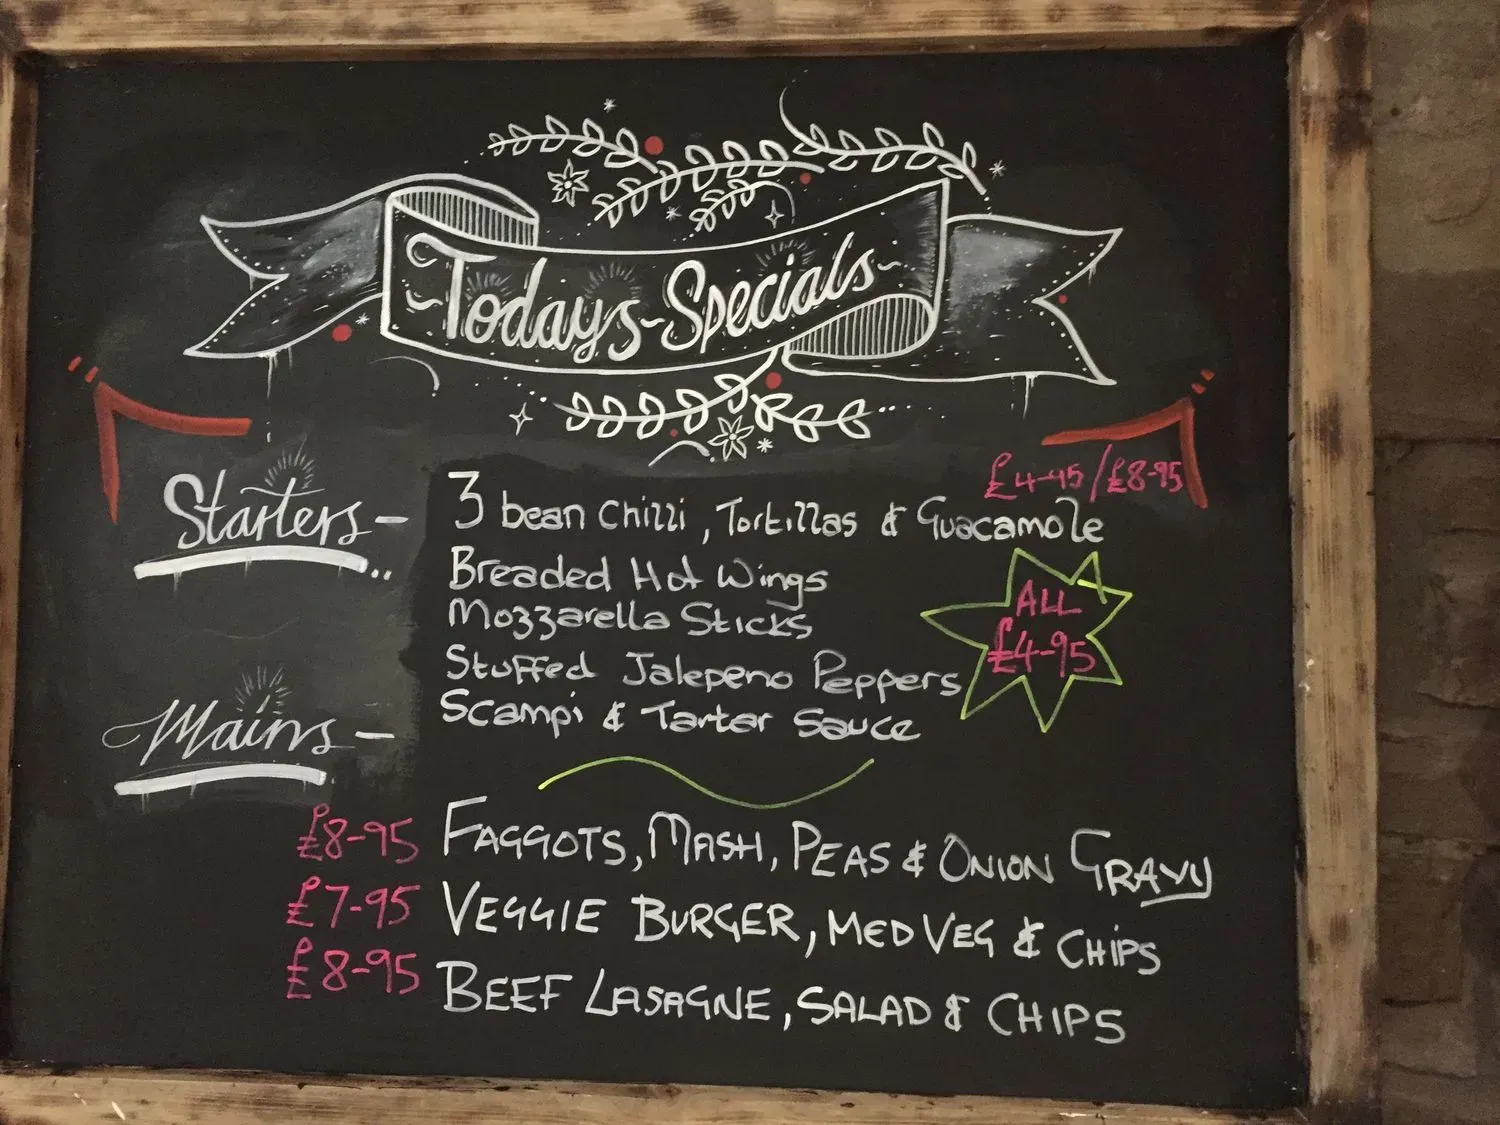 Todays Specials
Starters -
£4-95/£8-95
3 bean Chilli, Tortillas & Guacamole
Breaded Hot Wings
Mozzarella Sticks
Stuffed Jalepeno Peppers
Scampi & Tartar Sauce
ALL
£4-95
Mains -
£8-95 FAGGOTS, MASH, PEAS & ONION GRAVY
£7-95 VEGGIE BURGER, MED VEG & CHIPS
£8-95 BEEF LASAGNE, SALAD & CHIPS